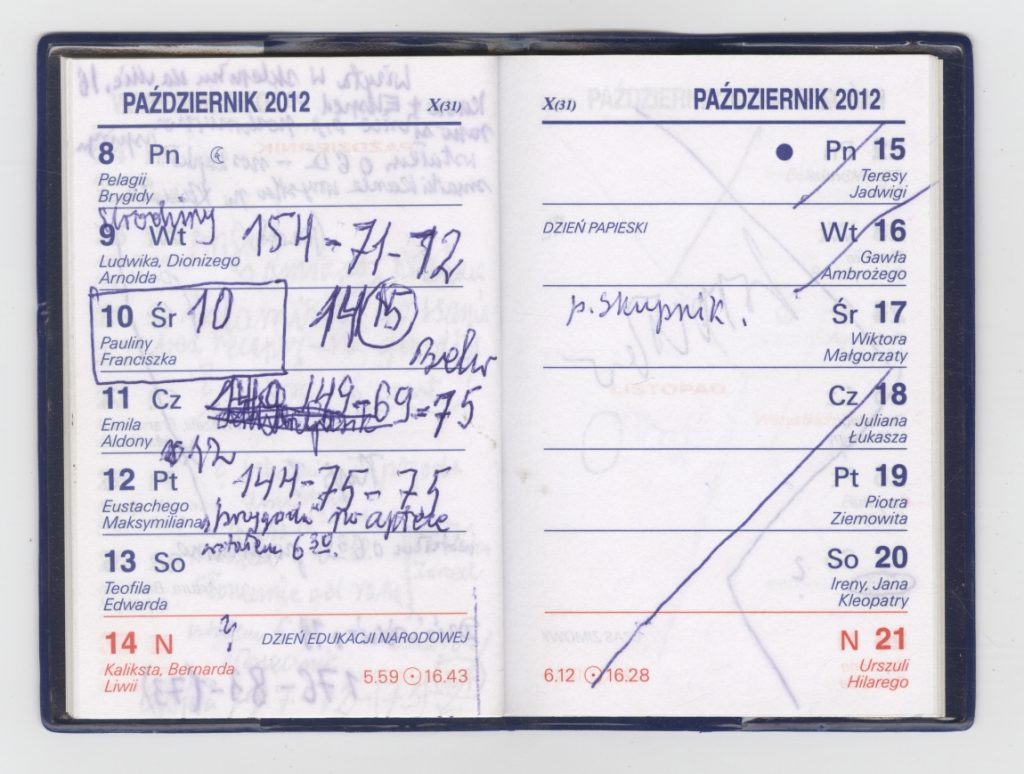 PAŹDZIERNIK 2012 X(31)
8 Pn
Pelagii
Brygidy
9 Wt 154-71-72
Ludwika, Dionizego
Arnolda
10 Śr 10 14(15)
Pauliny
Franciszka
11 Cz 149-69=75
Emila
Aldony
12 Pt 144-75-75
Eustachego
Maksymiliana "przygoda" w aptece
wstałem 6 30.
13 So
Teofila
Edwarda
14 N ? DZIEŃ EDUKACJI NARODOWEJ
Kaliksta, Bernarda
Liwii 5.59 16.43
X(31) PAŹDZIERNIK 2012
Pn 15
Teresy
Jadwigi
DZIEŃ PAPIESKI Wt 16
Gawła
Ambrożego
p. Skupnik. Śr 17
Wiktora
Małgorzaty
Cz 18
Juliana
Łukasza
Pt 19
Piotra
Ziemowita
So 20
Ireny, Jana
Kleopatry
N 21
Urszuli
6.12 16.28 Hilarego